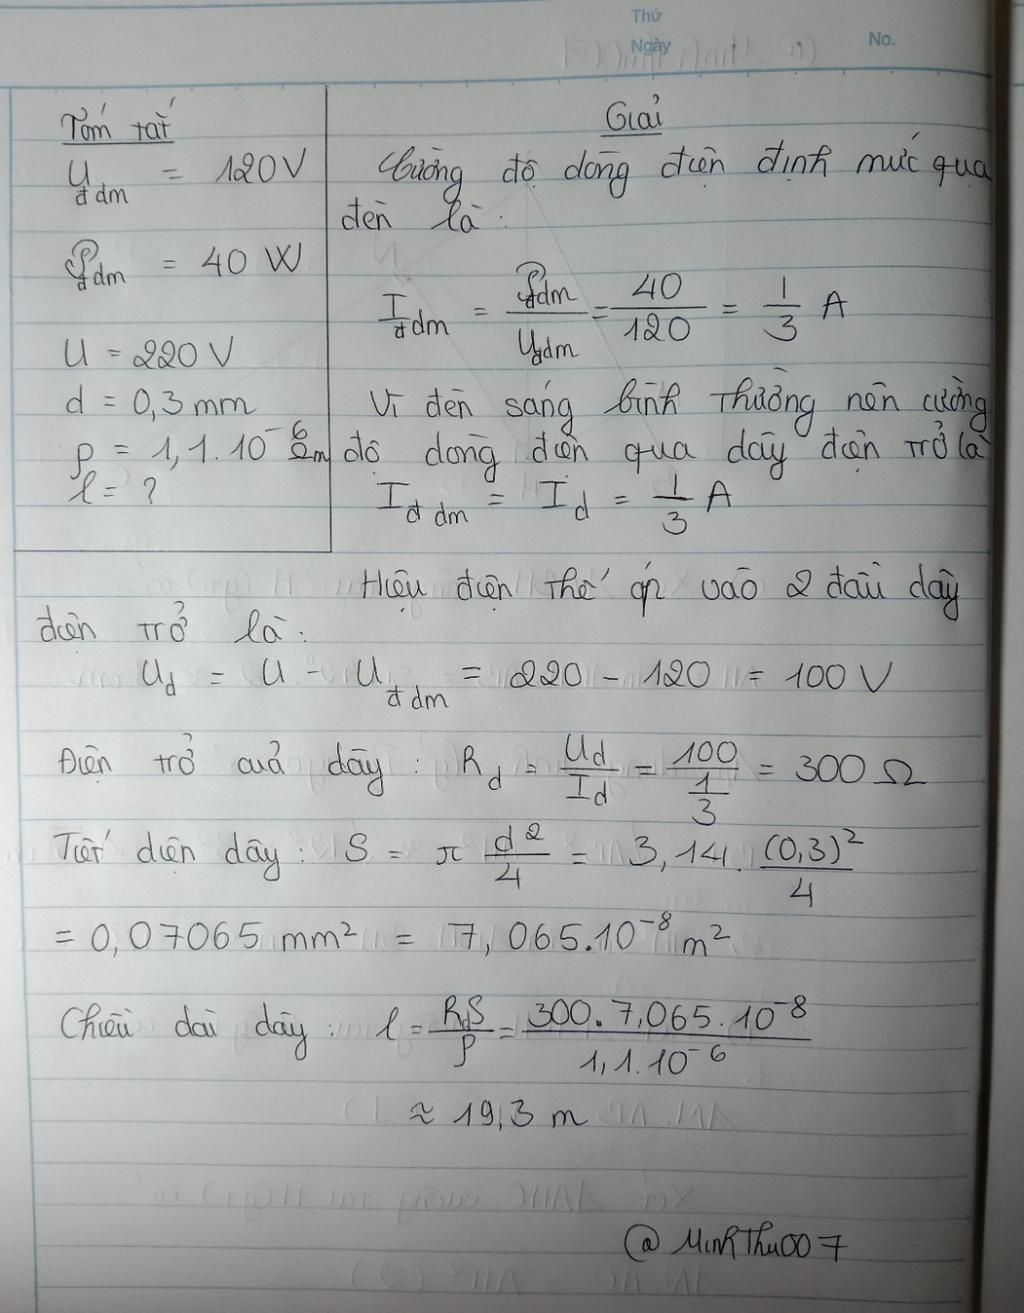 Thứ
Ngày
No.
Tóm tắt
U đdm = 120V
℘ đdm = 40 W
U = 220 V
d = 0,3 mm
ρ = 1,1.10⁻⁶ Ωm
l = ?
Giải
Cường độ dòng điện định mức qua
đèn là:
I đdm = ℘đdm / Uđdm = 40/120 = 1/3 A
Vì đèn sáng bình thường nên cường
độ dòng điện qua dây điện trở là
I đdm = I d = 1/3 A
Hiệu điện thế áp vào 2 đầu dây
điện trở là:
U d = U - U đdm = 220 - 120 = 100 V
Điện trở của dây : R d = U d / I d = 100 / (1/3) = 300 Ω
Tiết diện dây : S = π d²/4 = 3,14. (0,3)²/4
= 0,07065 mm² = 7,065.10⁻⁸ m²
Chiều dài dây : l = R d S / ρ = 300.7,065.10⁻⁸ / 1,1.10⁻⁶
≈ 19,3 m
@ MinhThu007